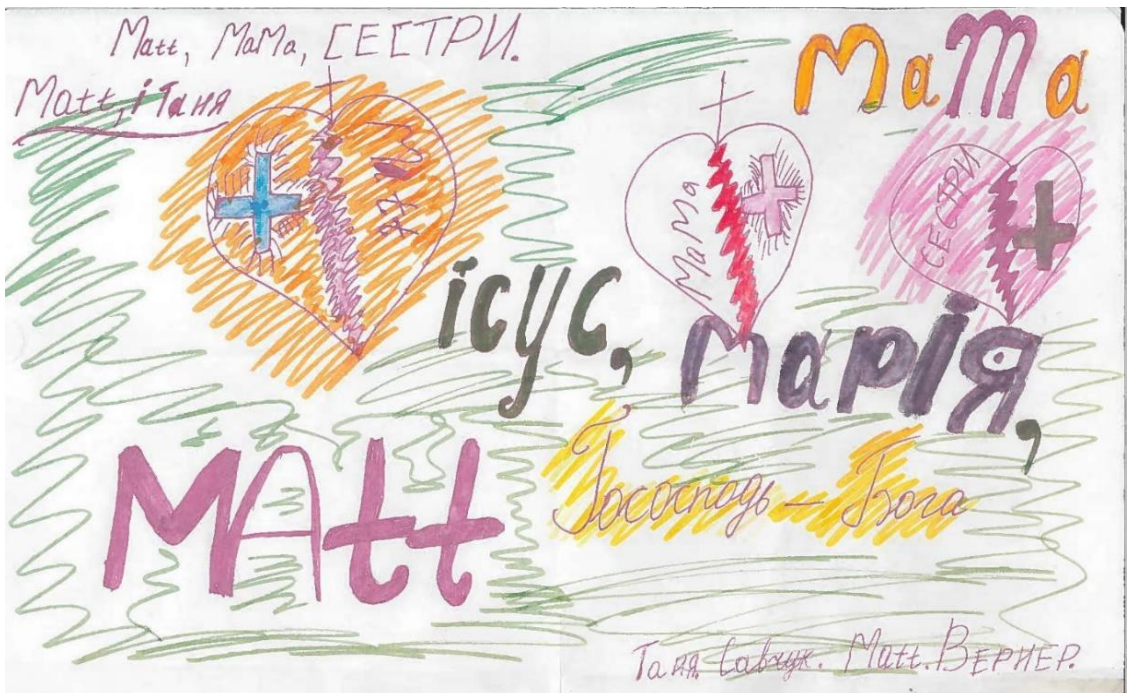 Matt, МаМа, СЕСТРИ.
Matt, і Таня
МаМа
Matt
МаМа
СЕСТРИ
ісус, Марія,
MAtt
Гососподь – Бога
Таня. Савчук. Matt. ВЕРНЕР.